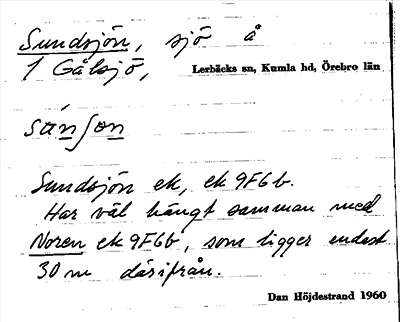 Sundsjön, sjö å
1 Gålsjö, Lerbäcks sn, Kumla hd, Örebro län
súnʃon
Sundsjön ek, ek 9F6b.
Har väl hängt samman med
Noren ek 9F6b, som ligger endast
30 m därifrån.
Dan Höjdestrand 1960